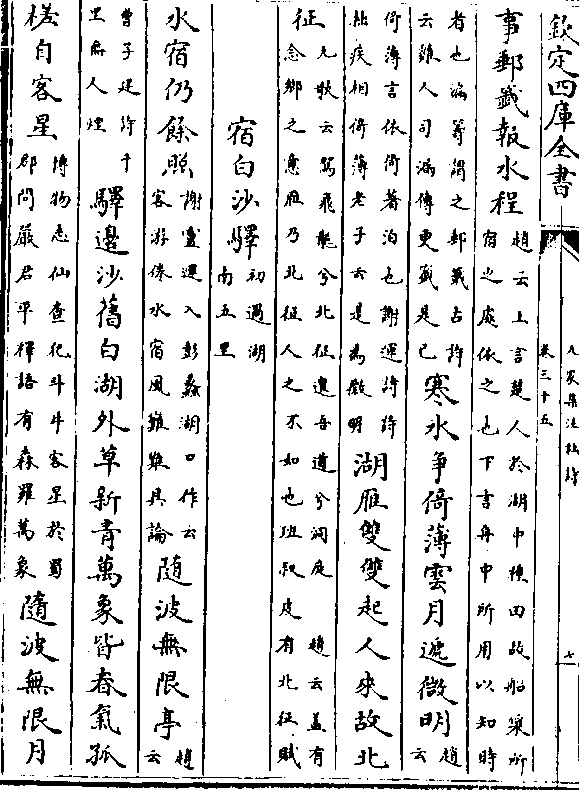 欽定四庫全書
九家集注杜詩
卷三十五
七
事郵籖報水程
趙云上言楚人於湖中種田故船窠所
宿之處依之也下言舟中所用以知時
者也編籌謂之郵籖古詩
云雞人司漏傳更籖是已
寒冰爭倚薄雲月遞微明
趙
云
倚薄言依倚著泊也謝運詩詩
拙疾相倚薄老子云是為微明
湖雁雙雙起人來故北
征
九歌云駕飛龍兮北征邅吾道兮洞庭 趙云蓋有
念鄉之意雁乃北征人之不如也班叔皮有北征賦
宿白沙驛
初過湖
南五里
水宿仍餘照
謝靈運入彭蠡湖口作云
客游倦水宿風難難具論
隨波無限亭
趙
云
曹子建詩千
里無人煙
驛邊沙舊白湖外草新青萬象皆春氣孤
槎自客星
博物志仙查犯斗牛客星於蜀
郡問嚴君平禪語有森羅萬象
隨波無限月